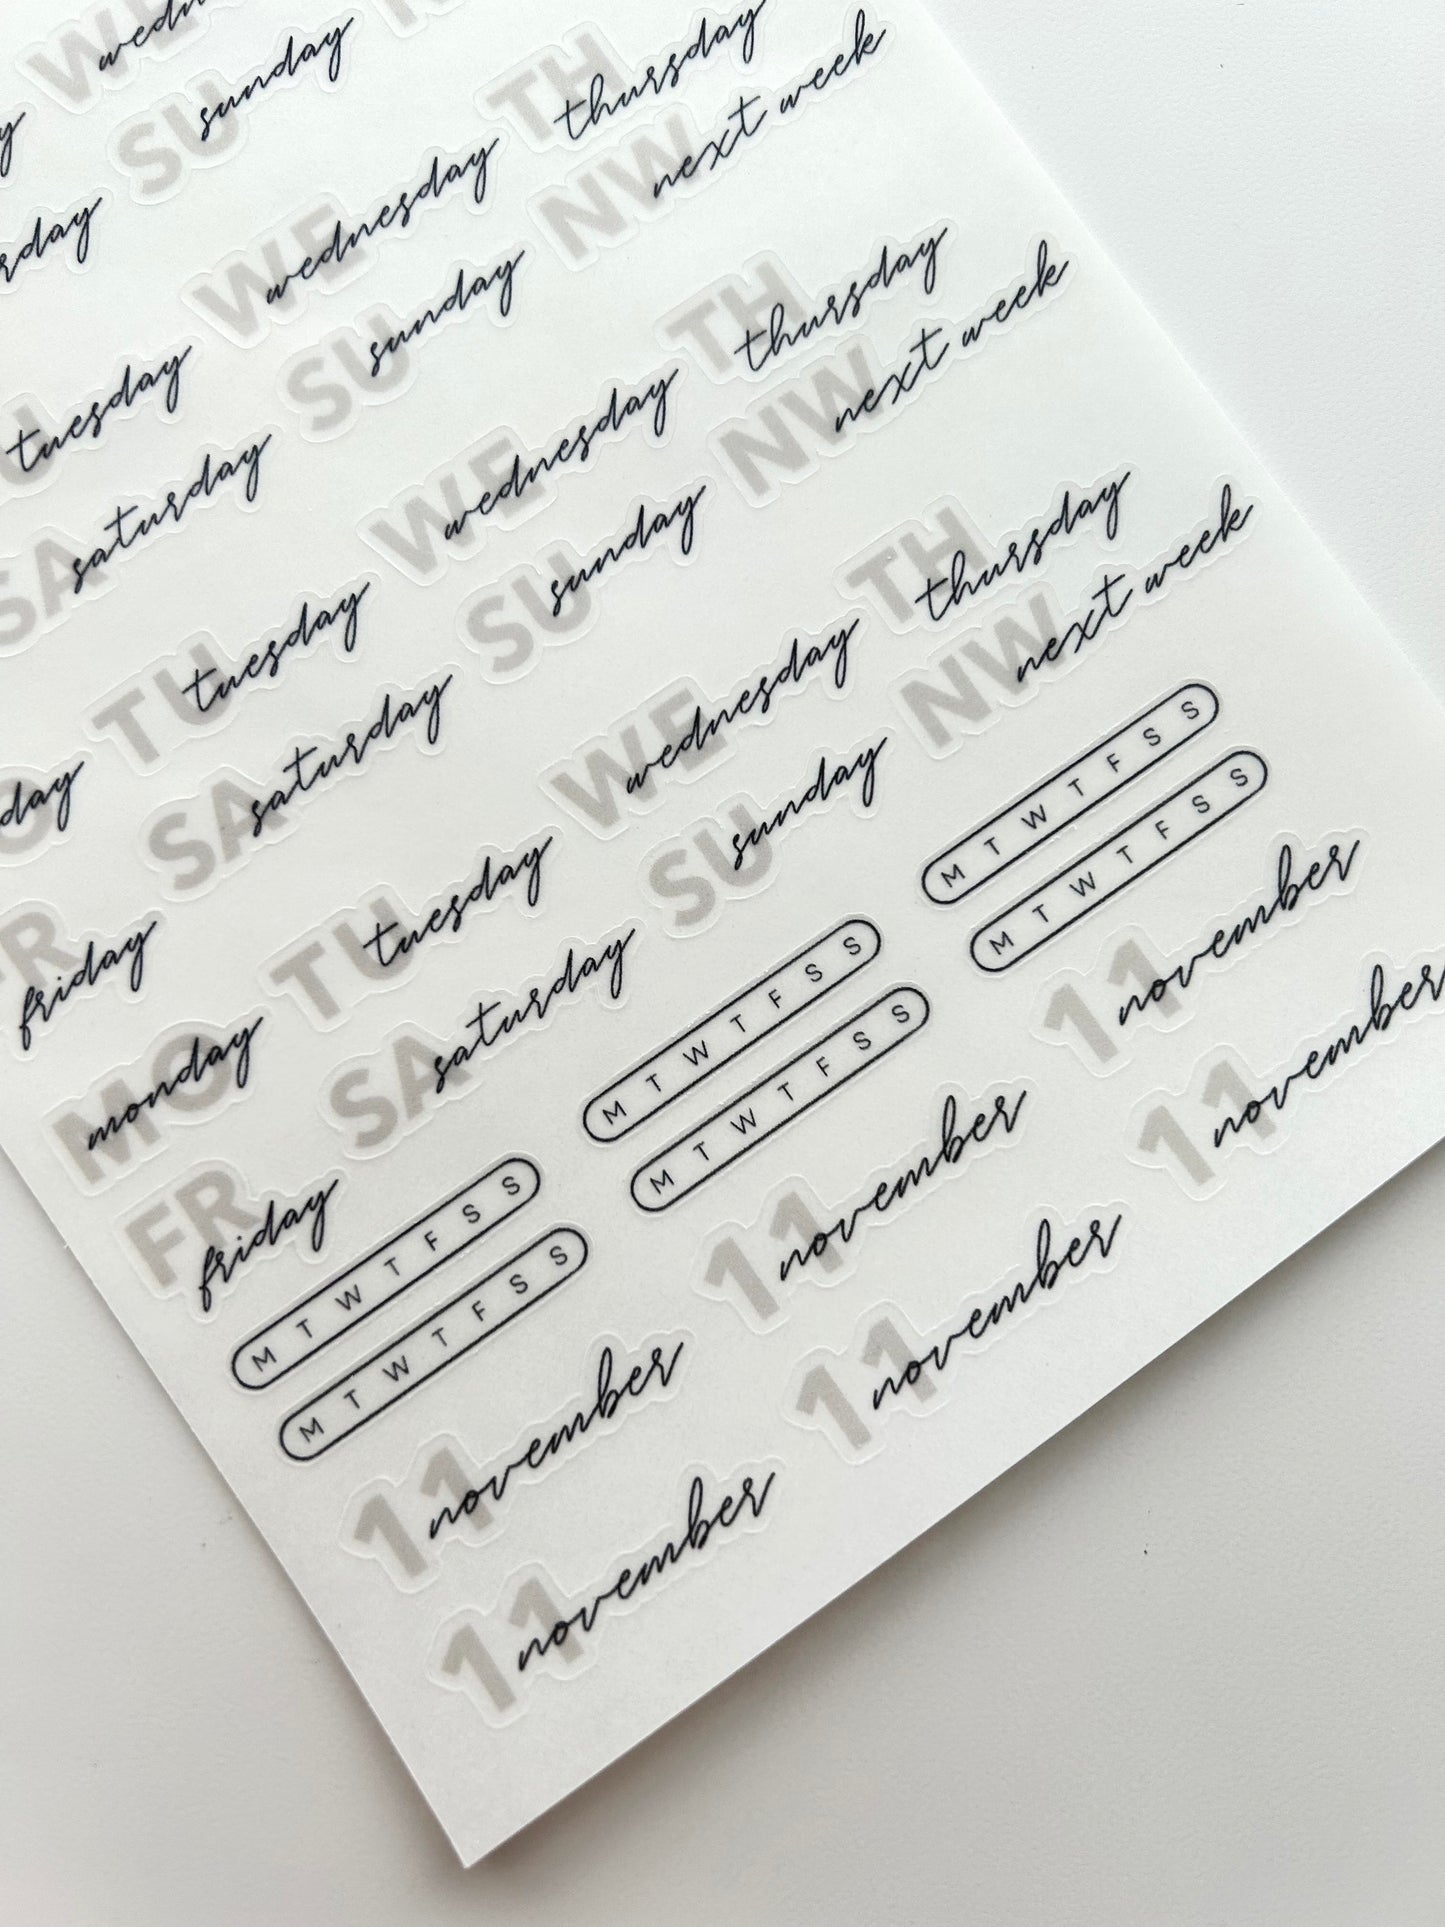 WE wedn
SU sunday
TU tuesday WE wednesday TH thursday
SA saturday SU sunday NW next week
TU tuesday WE wednesday TH thursday
FR friday SA saturday SU sunday NW next week
MO monday TU tuesday WE wednesday TH thursday
FR friday SA saturday SU sunday NW next week
M T W T F S S M T W T F S S M T W T F S S
M T W T F S S M T W T F S S M T W T F S S
11 november 11 november 11 november
11 november 11 november 11 november